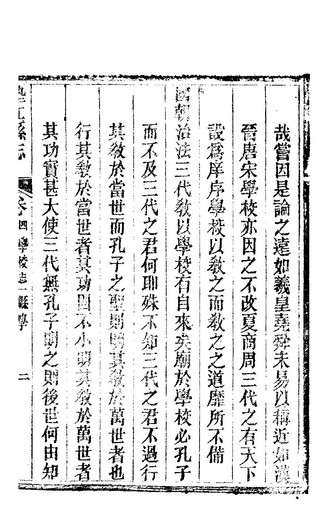 哉嘗因是論之遠如羲皇堯舜未易以稱近如漢
晉唐宋學校亦因之不改夏商周三代之有天下
設爲庠序學校以敎之而敎之之道靡所不備
國朝治法三代敎以學校有自來矣廟於學校必孔子
而不及三代之君何耶殊不知三代之君不過行
其敎於當世而孔子之聖則明其敎於萬世也
行其敎於當世者其功固不小明其敎於萬世者
其功實甚大使三代無孔子明之則後世何由知
縣志
卷四 學校志 一 縣學 二